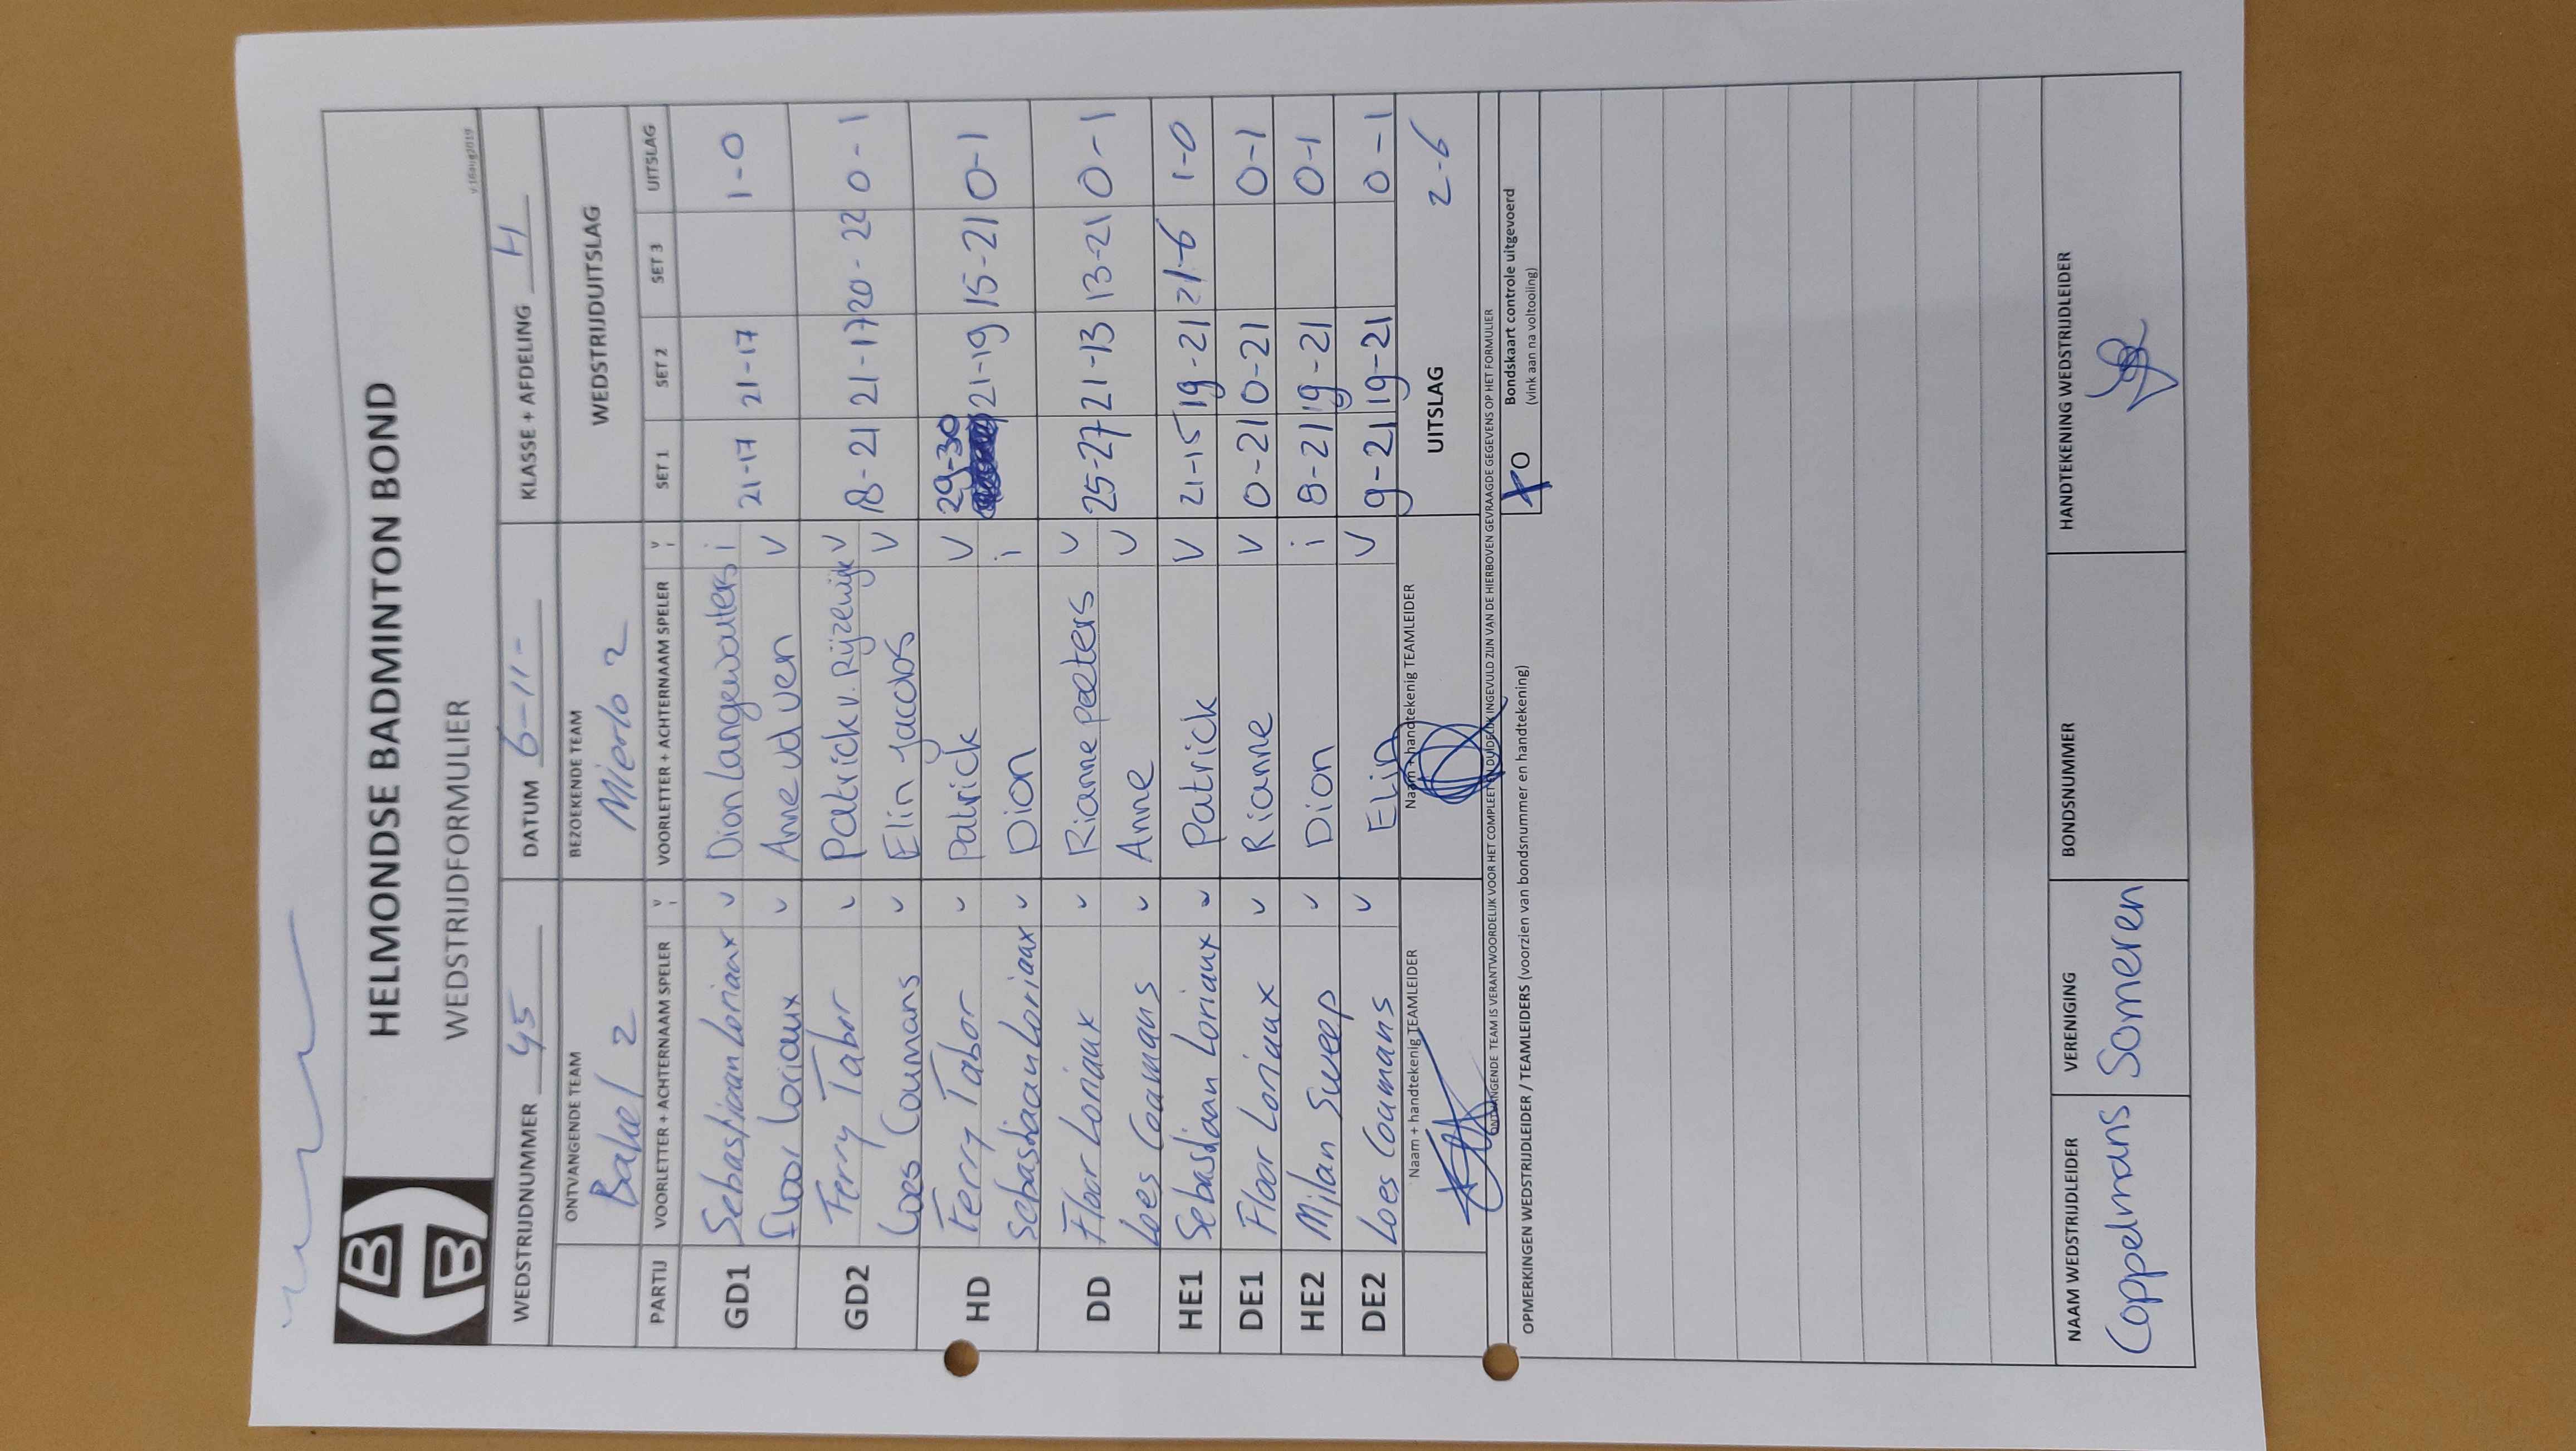 HELMONDSE BADMINTON BOND
WEDSTRIJDFORMULIER
v.18aug2019
WEDSTRIJDNUMMER 45 DATUM 6-11- KLASSE + AFDELING H
ONTVANGENDE TEAM BEZOEKENDE TEAM WEDSTRIJDUITSLAG
Bakel 2 Mierlo 2
PARTIJ VOORLETTER + ACHTERNAAM SPELER V I VOORLETTER + ACHTERNAAM SPELER V I SET 1 SET 2 SET 3 UITSLAG
GD1 Sebastiaan Loriaux v Dion Langewouters i 21-17 21-17 1-0
Floor Loriaux v Anne vd Ven v
GD2 Ferry Tabor v Patrick v. Rijzewijk v 18-21 21-17 20-22 0-1
Loes Coumans v Elin Jacobs v
HD Ferry Tabor v Patrick v 29-30 21-19 15-21 0-1
Sebastiaan Loriaux v Dion i
DD Floor Loriaux v Rianne Peeters v 25-27 21-13 13-21 0-1
Loes Coumans v Anne v
HE1 Sebastiaan Loriaux v Patrick v 21-15 19-21 21-6 1-0
DE1 Floor Loriaux v Rianne v 0-21 0-21 0-1
HE2 Milan Sweep v Dion i 8-21 19-21 0-1
DE2 Loes Coumans v Elin v 9-21 19-21 0-1
Naam + handtekenig TEAMLEIDER Naam + handtekenig TEAMLEIDER UITSLAG 2-6
ONTVANGENDE TEAM IS VERANTWOORDELIJK VOOR HET COMPLEET EN DUIDELIJK INGEVULD ZIJN VAN DE HIERBOVEN GEVRAAGDE GEGEVENS OP HET FORMULIER
OPMERKINGEN WEDSTRIJDLEIDER / TEAMLEIDERS (voorzien van bondsnummer en handtekening) X O Bondskaart controle uitgevoerd
(vink aan na voltooling)
NAAM WEDSTRIJDLEIDER VERENIGING BONDSNUMMER HANDTEKENING WEDSTRIJDLEIDER
Coppelmans Someren